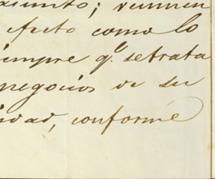 xiunto; reunien
efecto como lo
iempre qe. se trata
negocios de su
idad, conforme